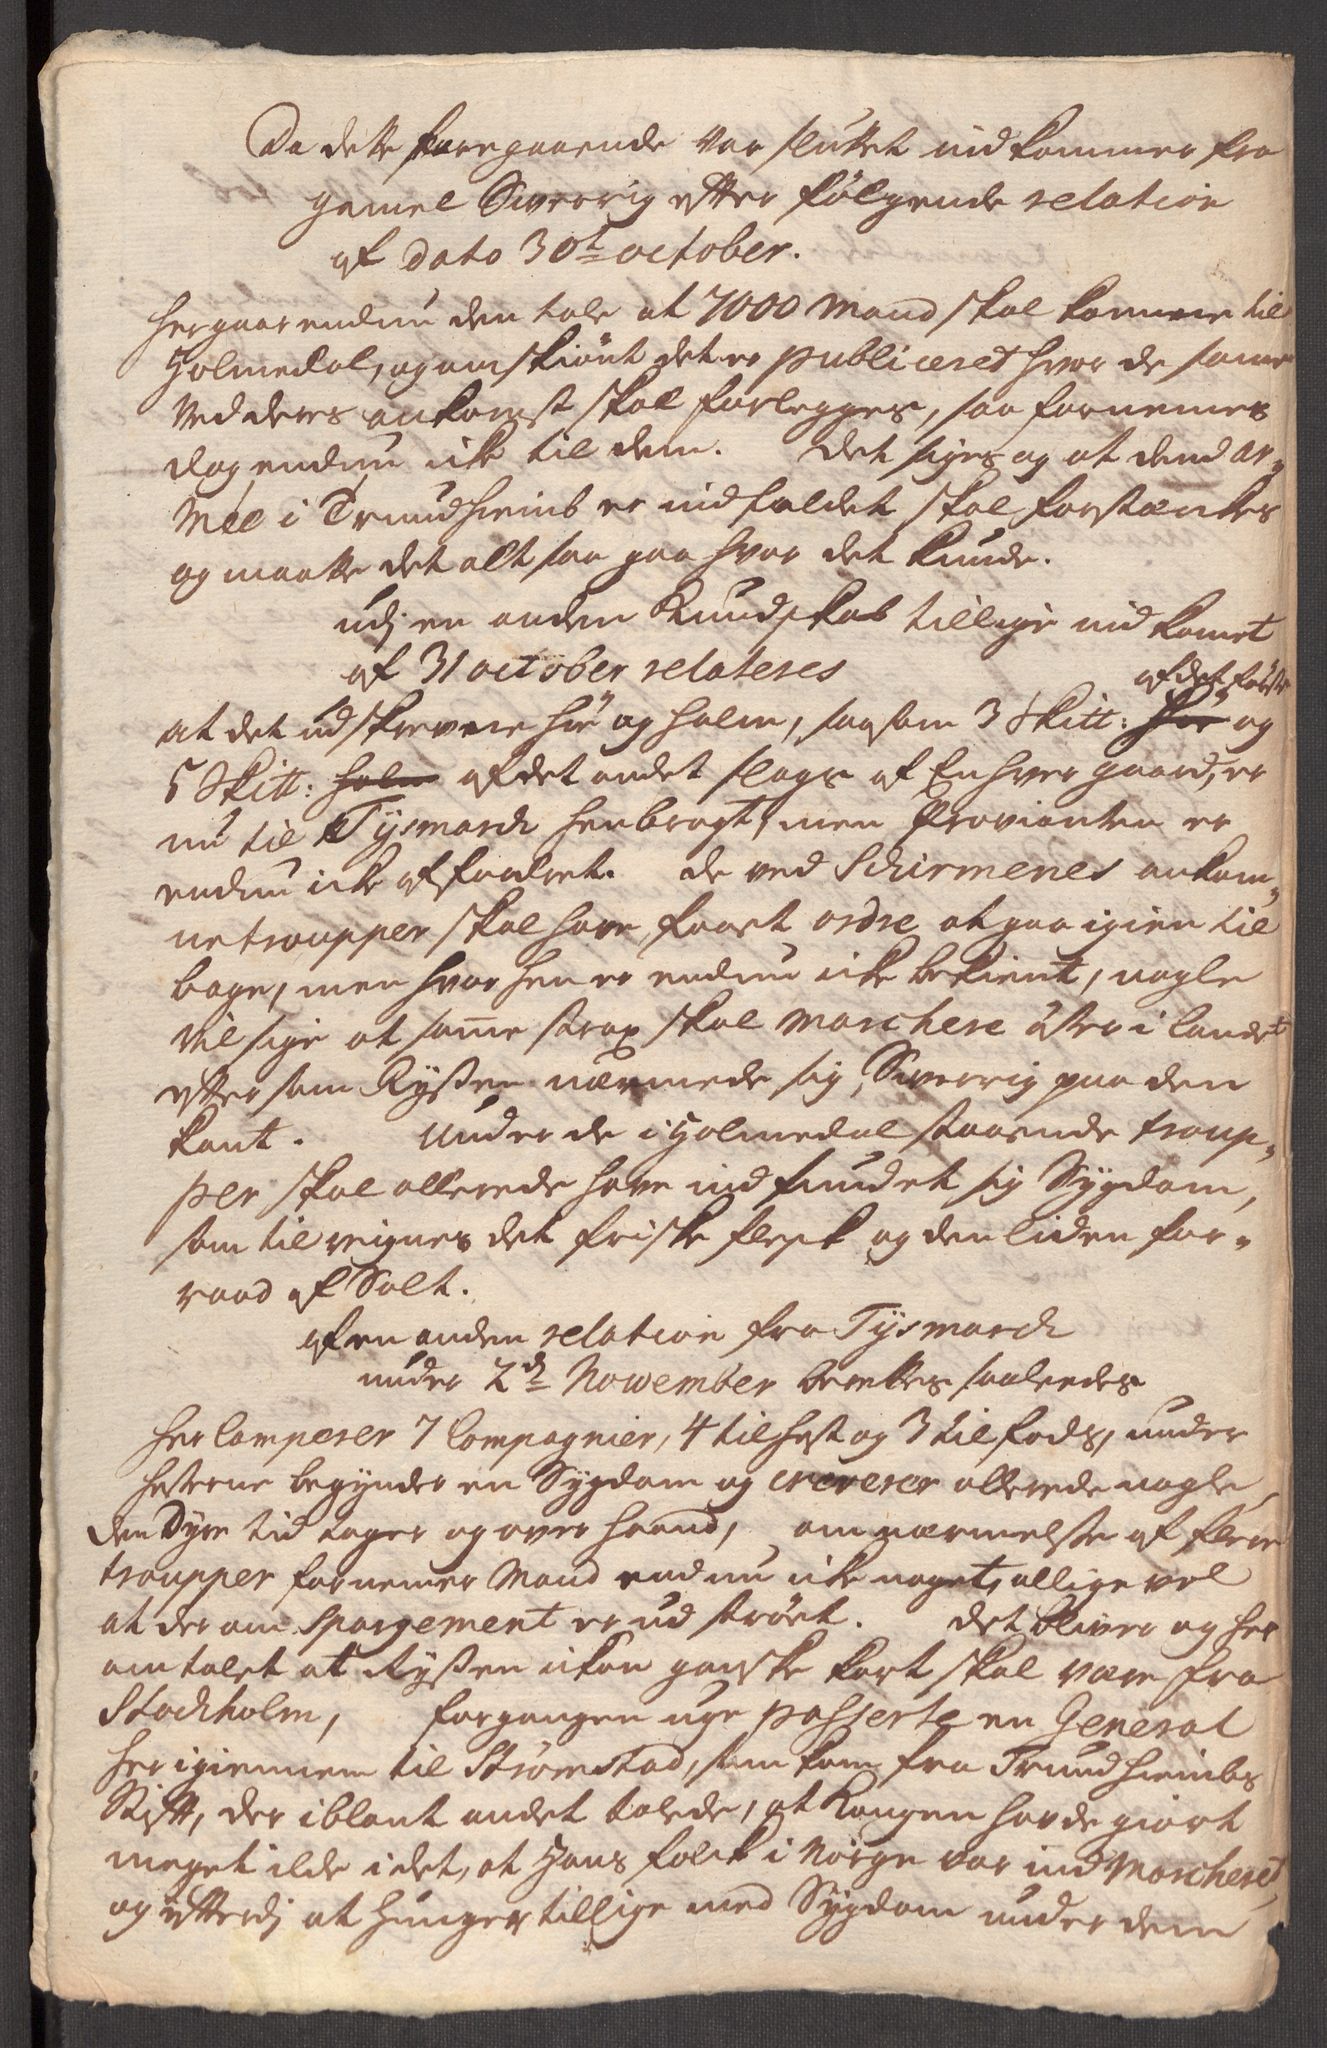 Da dette foregaaende var sluttet indkommer fra
gamel Swerrig efter følgende relation
af dato 30t october.
her gaar endnu den tale at 7000 Mand skal komme til
Holmedal, og omskiønt det er publiceret hvor de samme
ved deres ankomst skal forlegges, saa fornemes
dog endnu icke til dem. det siges og at dend ar-
Mée i Trundhiemb er indfaldet skal forstærckes
og maatte det alt saa gaa hvor det kunde.
udj en anden Kundskab tillige indkomet
af 31 october relateres
af det første
at det udskrevne høe og halm, saasom 3 Skitt: høe og
5 Skitt: halm af det andet slags af Enhver gaard, er
nu til Tysmarch henbragt, men Provianten er
endnu icke affordret. de ved Schirmenes ankom-
ne troupper skal have faaet ordre at gaa igien til
bage, men hvorhen er endnu icke bekient, nogle
vil sige at samme strax skal marchere øster i landet
eftersom Ryssen nærmede sig Swerrig paa den
kant. Under de i Holmedal staaende troup-
per skal allerede have indfundet sig Sygdom,
som tilreignes det friske flesk og den liden for-
raad af Salt.
af en anden relation fra Tysmarch
under 2d Nowember berettes saaledes
her Camperer 7 Compagnier, 4 til hest og 3 til fods, under
hesterne begynder en Sygdom og creverer allerede nogle,
den Dyre tid tager og over haand, om nærmelse af flere
troupper fornemer Mand endnu icke noget, alligevel
at der om Spargement er udstrøet. det bliver og her
omtalet at Ryssen ickon gandske kort skal være fra
Stockholm, forgangen uge passerte en General
her igiennem til Strømstad, som kom fra Trundhiembs
Stift, der iblant andet talede, at Kongen havde giort
meget ilde i det, at Hans folck i Norge var ind Marcheret,
og efterdj at hunger tillige med Sygdom under dem